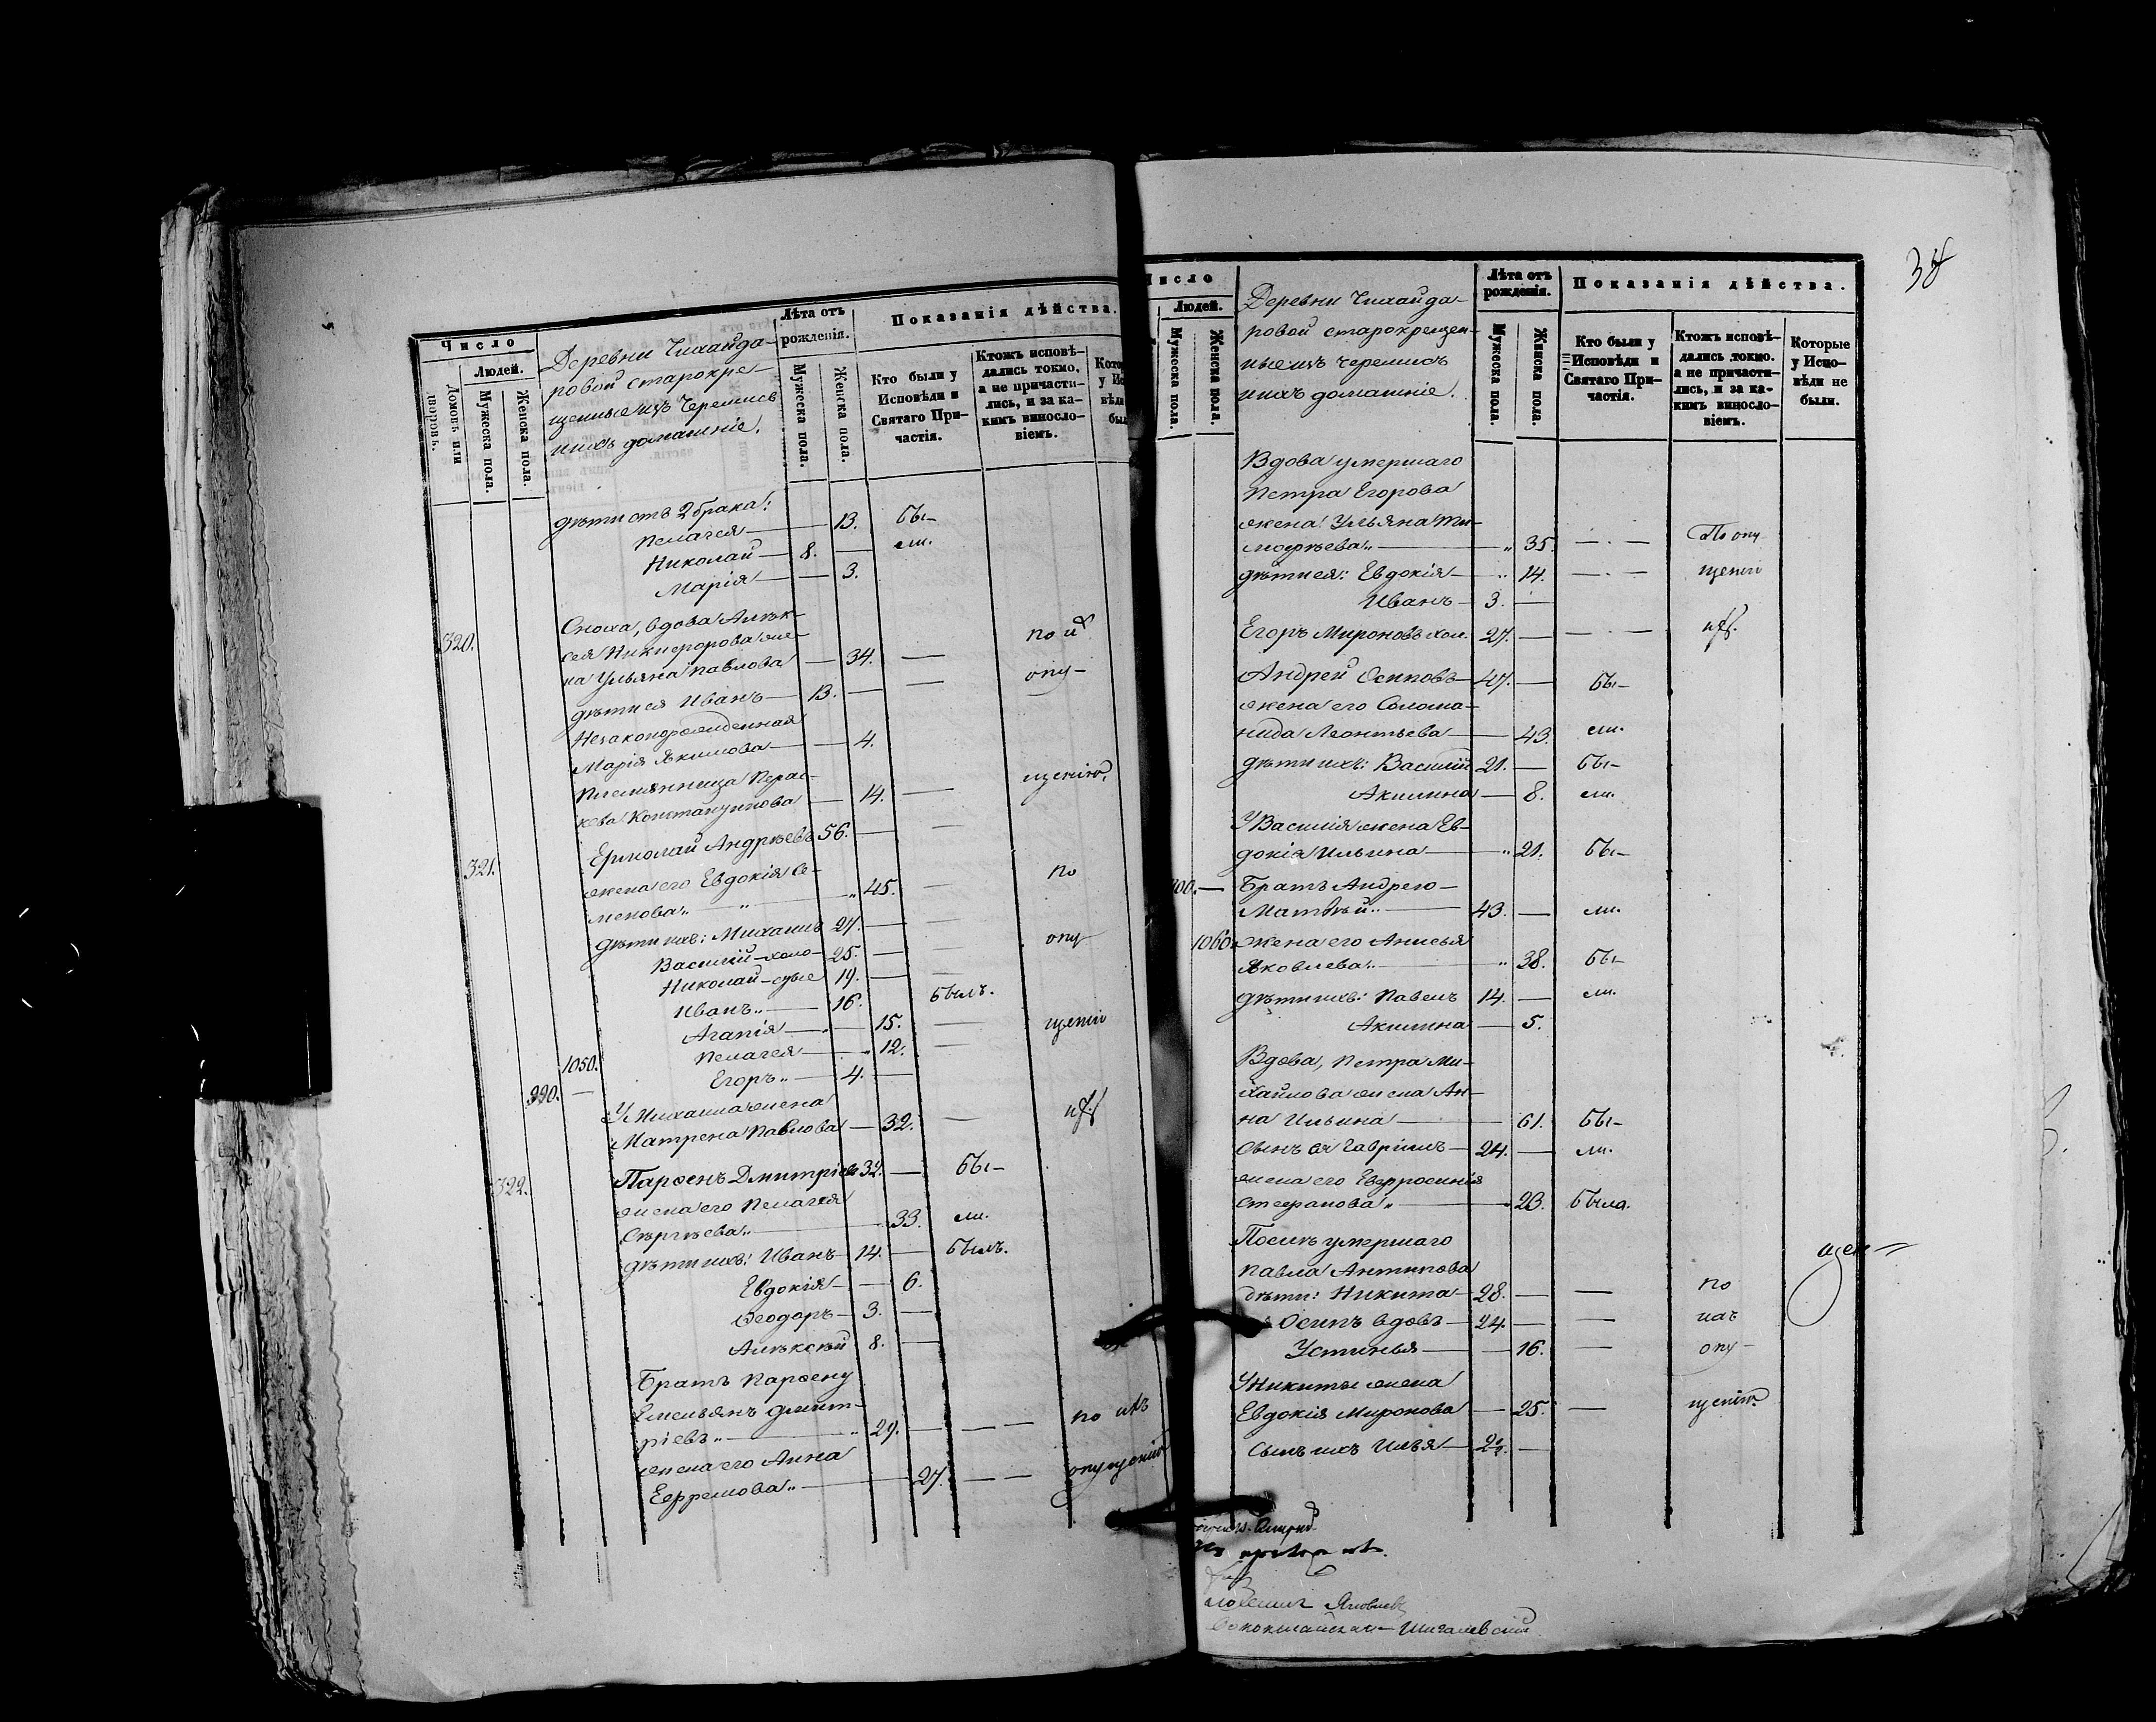 Число
Людей.
Домовъ или дворовъ.
Мужеска пола.
Женска пола.
Деревни Чихайда-
ровой старокре-
щенные изъ Черемисъ
и ихъ домашніе.
Лѣта отъ рожденія.
Мужеска пола.
Женска пола.
Показанія дѣйства.
Кто были у
Исповѣди и
Святаго При-
частія.
Ктожъ исповѣ-
дались токмо,
а не причасти-
лись, и за ка-
кимъ винословіемъ.
дѣти отъ 2 брака:
Пелагея — 13. бы-
Николай — 8. — ли.
Марія — — 3.
320. Сноха, вдова Алек-
сея Никифорова же-
на Ульяна Павлова — 34. —
дѣти ея Иванъ — 13. — — опу-
Незаконорожденная
Марія Якимова — — 4.
Племянница Парас-
кева Константинова — 14. — щенію
321. Ермолай Андрѣевъ 56. — —
жена его Евдокія Се-
менова „ — „ 45. — по
дѣти ихъ: Михаилъ 27. — —
Василій — холо- 25. — — опу
Николай — стые 19. — —
Иванъ „ — 16. былъ.
Агапія — — 15. — щенію
1050. Пелагея — „ 12. —
990. — Егоръ „ — 4. —
У Михаила жена
Матрена Павлова — 32. —
322. Парѳенъ Дмитріевъ 32. — бы-
жена его Пелагея
Сергѣева „ — 33. ли.
дѣти ихъ: Иванъ — 14. — былъ.
Евдокія — — 6.
Ѳеодоръ — 3. —
Алексѣй 8. —
Братъ Парѳену
Емельянъ Дмит-
ріевъ „ — „ 29. — — — по
жена его Анна
Ефремова „ — 27. — — опущенію
38
Число
Людей.
Мужеска пола.
Женска пола.
Деревни Чихайда-
ровой старокрещен-
ные изъ черемисъ
и ихъ домашніе.
Лѣта отъ рожденія.
Мужеска пола.
Женска пола.
Показанія дѣйства.
Кто были у
Исповѣди и
Святаго При-
частія.
Ктожъ исповѣ-
дались токмо.
а не причасти-
лись, и за ка-
кимъ винословіемъ.
Которые
у Испо-
вѣди не
были.
Вдова умершаго
Петра Егорова
жена Ульяна Ти-
мофѣева „ — „ 35. — . — По опу
дѣти ея: Евдокія — „ 14. — . — щенію
Иванъ — 3. —
Егоръ Мироновъ хол. 27. — — . —
Андрей Осиповъ — 47. — бы-
жена его Солома-
нида Леонтьева — 43. ли.
дѣти ихъ: Василій 21. — бы-
Акилина — 8. ли.
У Василія жена Ев-
докія Ильина — „ 21. бы-
Братъ Андрею —
Матвѣй „ — 43. — ли.
1060. жена его Анисья
Яковлева „ — „ 38. бы-
дѣти ихъ: Павелъ 14. — ли.
Акилина — 5.
Вдова, Петра Ми-
хайлова жена Ан-
на Ильина — 61. бы-
Сынъ ея Гавріилъ — 24. — ли.
жена его Евфросинія
Стефанова „ — 23. была.
Послѣ умершаго
Павла Антипова
дѣти: Никита — 28. — — по
Осипъ вдовъ — 24. — —
Устинья — — 16. — опу-
У Никиты жена
Евдокія Миронова — 25. — щенію
Сынъ ихъ Илья — —
Яковлевъ